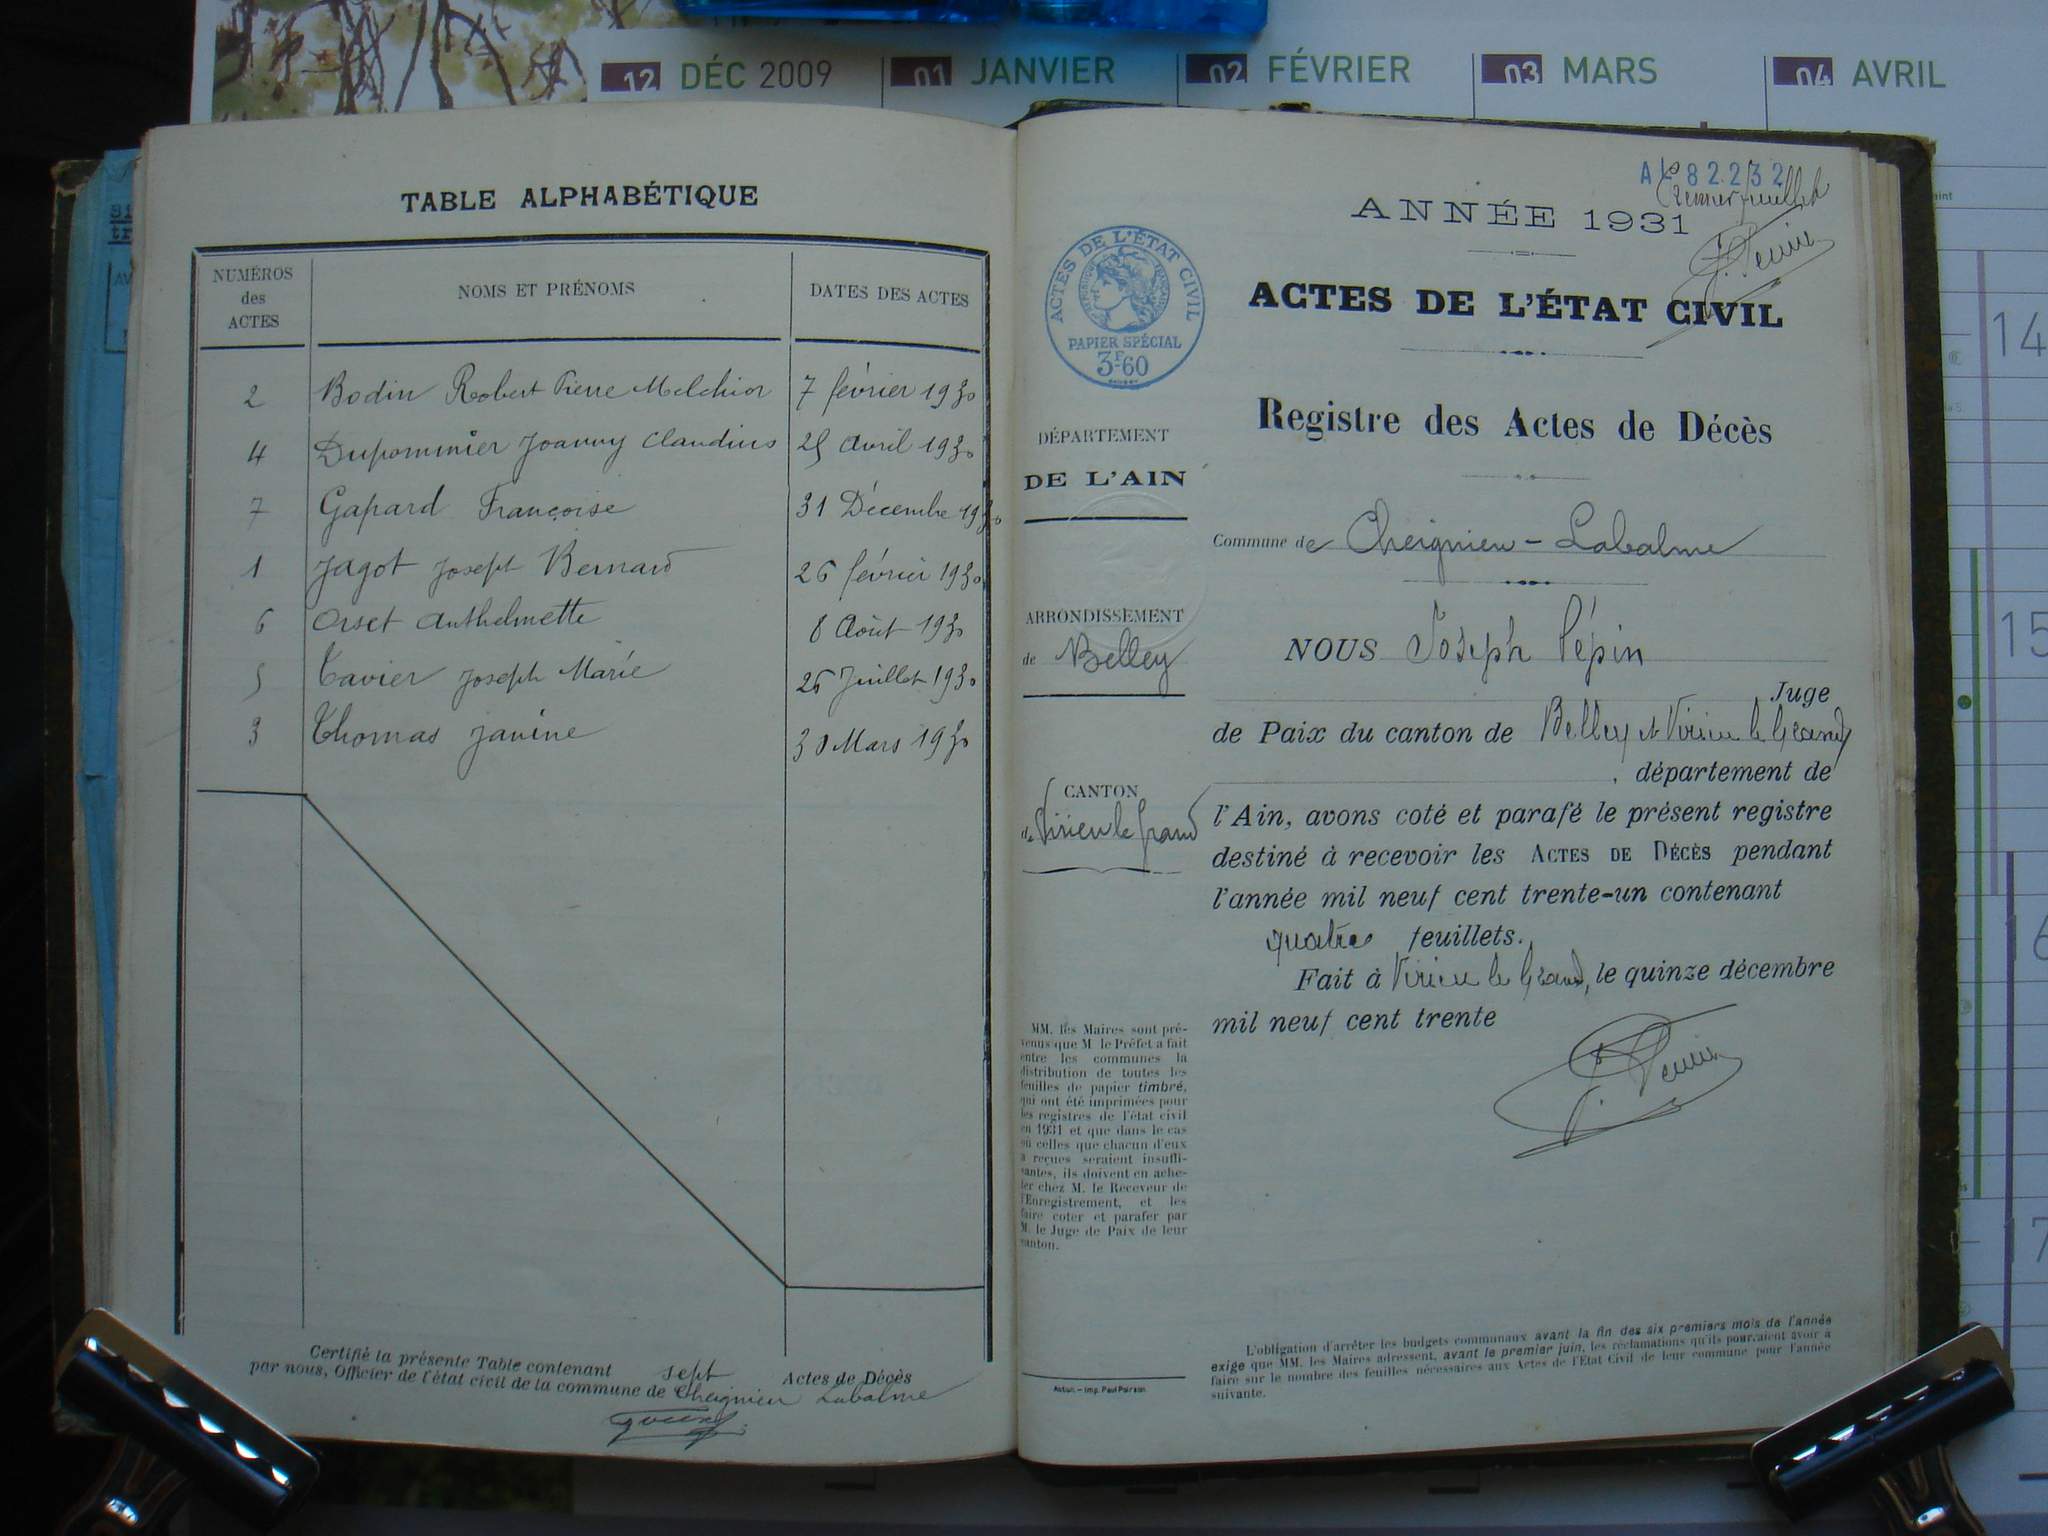 12 DÉC 2009 01 JANVIER 02 FÉVRIER 03 MARS 04 AVRIL
TABLE ALPHABÉTIQUE
NUMÉROS des ACTES NOMS ET PRÉNOMS DATES DES ACTES
2 Bodin Robert Pierre Melchior 7 février 1930
4 Dupommier Joanny Claudius 25 Avril 1930
7 Gapard Françoise 31 Décembre 1930
1 Jagot Joseph Bernard 26 février 1930
6 Orset Anthelmette 8 Août 1930
5 Tavier Joseph Marie 26 Juillet 1930
3 Thomas Janine 30 Mars 1930
Certifié la présente Table contenant sept Actes de Décès
par nous, Officier de l'état civil de la commune de Cheignieu Labalme
A 82232
Premier feuillet
ANNÉE 1931
J. Pépin
ACTES DE L'ÉTAT CIVIL
RÉPUBLIQUE FRANÇAISE
PAPIER SPÉCIAL
3F60
ACTES DE L'ÉTAT CIVIL
Registre des Actes de Décès
DÉPARTEMENT
DE L'AIN
Commune de Cheignieu-Labalme
ARRONDISSEMENT
de Belley
CANTON
de Virieu le Grand
NOUS Joseph Pépin
Juge
de Paix du canton de Belley et Virieu le Grand
, département de
l'Ain, avons coté et parafé le présent registre
destiné à recevoir les ACTES DE DÉCÈS pendant
l'année mil neuf cent trente-un contenant
quatre feuillets.
Fait à Virieu le Grand, le quinze décembre
mil neuf cent trente
J. Pépin
MM. les Maires sont pré-
venus que M. le Préfet a fait
entre les communes la
distribution de toutes les
feuilles de papier timbré,
qui ont été imprimées pour
les registres de l'état civil
en 1931 et que dans le cas
où celles que chacun d'eux
a reçues seraient insuffi-
santes, ils doivent en ache-
ter chez M. le Receveur de
l'Enregistrement, et les
faire coter et parafer par
M. le Juge de Paix de leur
canton.
Imp. Paul Poirson
L'obligation d'arrêter les budgets communaux avant la fin des six premiers mois de l'année
exige que MM. les Maires adressent, avant le premier juin, les réclamations qu'ils pourraient avoir à
faire sur le nombre des feuilles nécessaires aux Actes de l'État Civil de leur commune pour l'année
suivante.
14
15
16
17